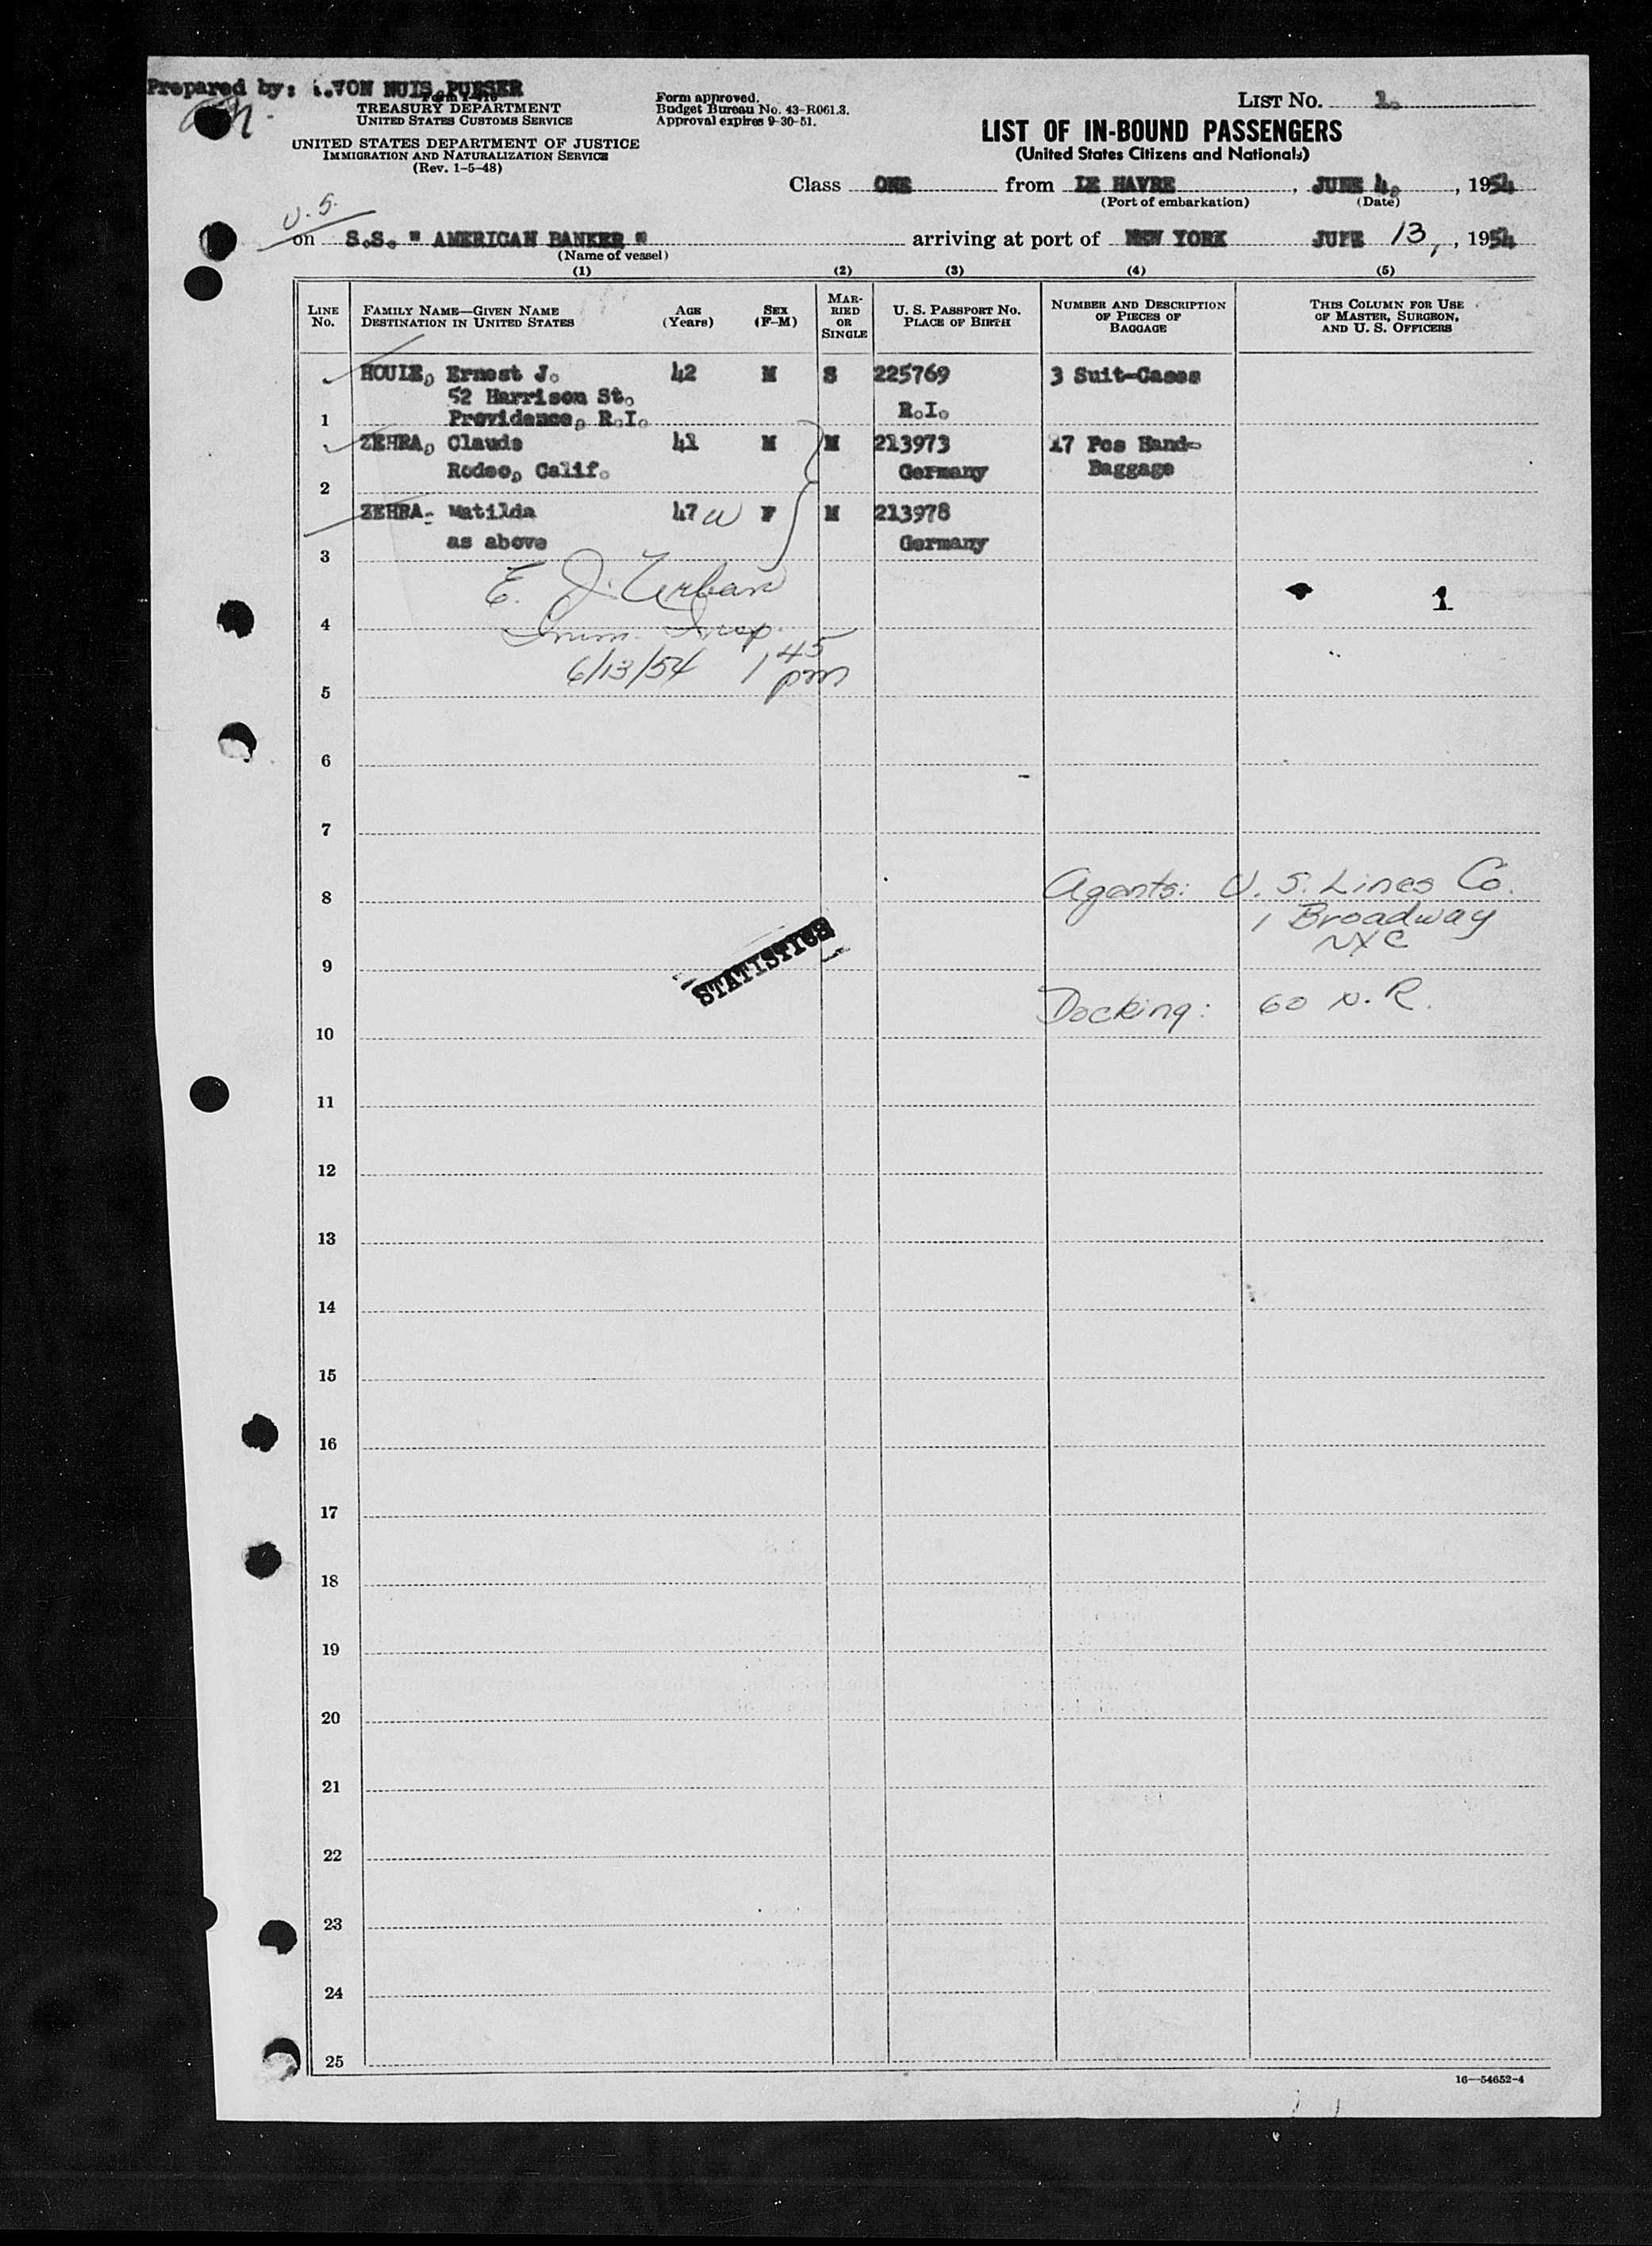 Prepared by: VON NUIS PURSER
Form I-416
TREASURY DEPARTMENT
UNITED STATES CUSTOMS SERVICE
UNITED STATES DEPARTMENT OF JUSTICE
IMMIGRATION AND NATURALIZATION SERVICE
(Rev. 1-5-48)
Form approved.
Budget Bureau No. 43-R061.3.
Approval expires 9-30-51.
LIST NO. 1.
LIST OF IN-BOUND PASSENGERS
(United States Citizens and Nationals)
Class ONE from LE HAVRE, JUNE 4, 1954
(Port of embarkation) (Date)
U.S.
on S.S. " AMERICAN BANKER " arriving at port of NEW YORK JUNE 13, 1954
(Name of vessel)
(1) (2) (3) (4) (5)
LINE No. FAMILY NAME—GIVEN NAME DESTINATION IN UNITED STATES AGE (Years) SEX (F-M) MARRIED OR SINGLE U. S. PASSPORT NO. PLACE OF BIRTH NUMBER AND DESCRIPTION OF PIECES OF BAGGAGE THIS COLUMN FOR USE OF MASTER, SURGEON, AND U. S. OFFICERS
HOULE, Ernest J. 42 M S 225769 3 Suit-Cases
52 Harrison St.
1 Providence, R.I. R.I.
ZEHRA, Claude 41 M M 213973 17 Pcs Hand-
Rodeo, Calif. Germany Baggage
2
ZEHRA- Matilda 47 W F M 213978
as above Germany
3
E. J. Urban
1
4 Imm. Insp.
6/13/54 1 45 pm
5
6
7
8 Agents: U. S. Lines Co.
1 Broadway
NYC
STATISTICS
9
Docking: 60 N. R.
10
11
12
13
14
15
16
17
18
19
20
21
22
23
24
25
16—54652-4